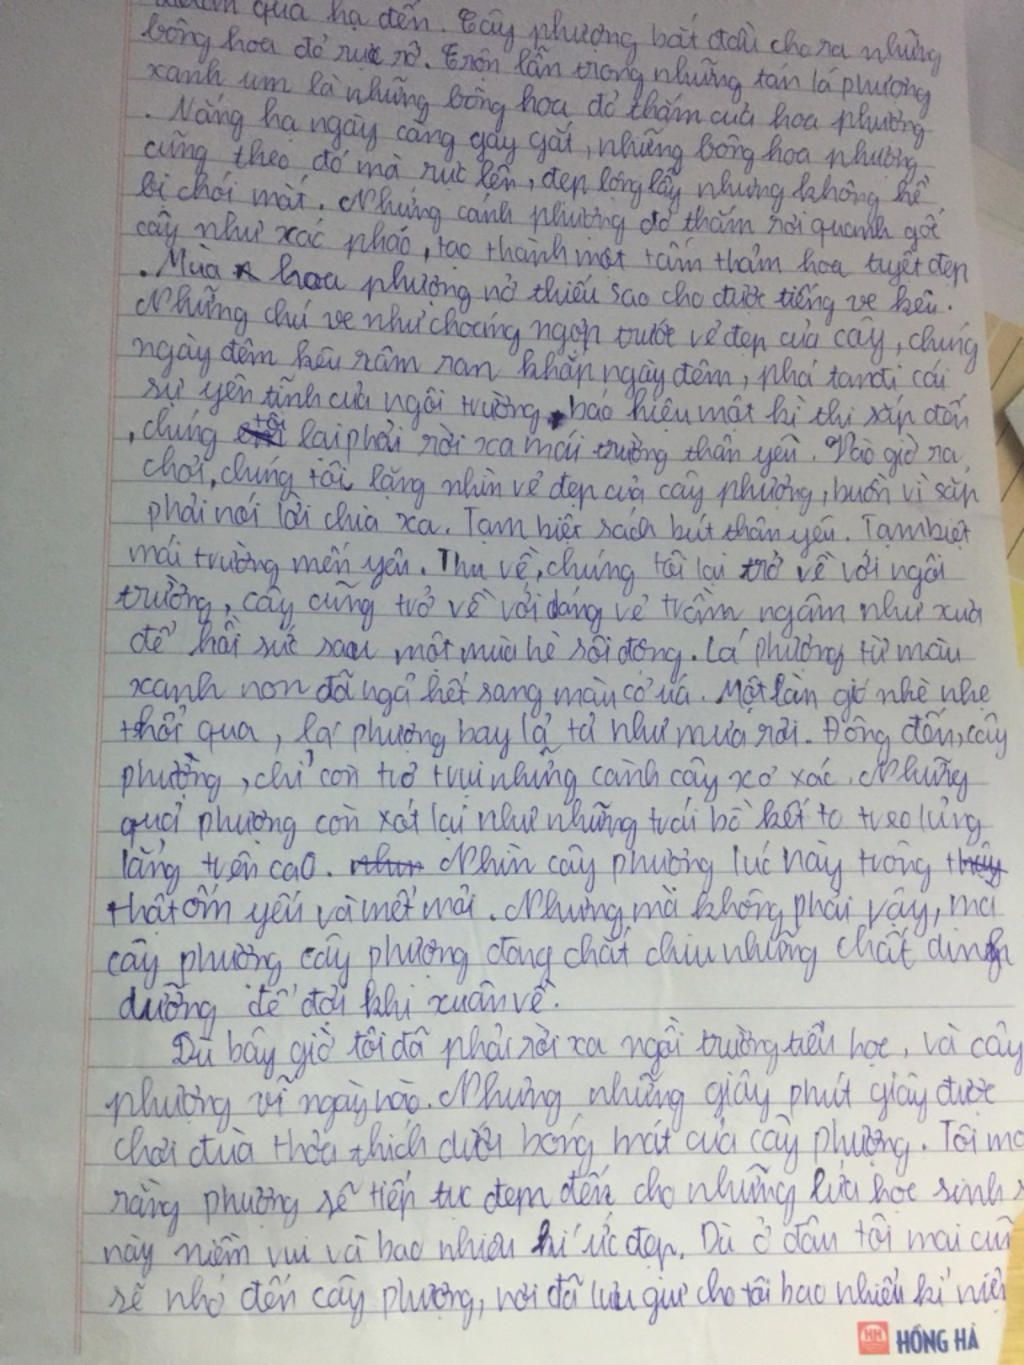 qua hạ đến. Cây phượng bắt đầu cho ra những
bông hoa đỏ rực rỡ. Trộn lẫn trong những tán lá phượng
xanh um là những bông hoa đỏ thắm của hoa phượng
. Nắng hạ ngày càng gay gắt, những bông hoa phượng
cũng theo đó mà rực lên, đẹp lộng lẫy nhưng không hề
bị chói mắt. Những cánh phượng đỏ thắm rơi quanh gốc
cây như xác pháo, tạo thành một tấm thảm hoa tuyệt đẹp
. Mùa hoa phượng nở thiếu sao cho được tiếng ve kêu.
Những chú ve như choáng ngợp trước vẻ đẹp của cây, chúng
ngày đêm kêu râm ran khắp ngày đêm, phá tan đi cái
sự yên tĩnh của ngôi trường, báo hiệu một kì thi sắp đến
, chúng tôi lại phải rời xa mái trường thân yêu. Vào giờ ra
chơi, chúng tôi lặng nhìn vẻ đẹp của cây phượng, buồn vì sắp
phải nói lời chia xa. Tạm biệt sách bút thân yêu. Tạm biệt
mái trường mến yêu. Thu về, chúng tôi lại trở về với ngôi
trường, cây cũng trở về với dáng vẻ trầm ngâm như xưa
để hồi sức sau một mùa hè sôi động. Lá phượng từ màu
xanh non đã ngả hết sang màu cỏ úa. Một làn gió nhè nhẹ
thổi qua, lá phượng bay lả tả như mưa rơi. Đông đến, cây
phượng, chỉ còn trơ trụi những cành cây xơ xác. Những
quả phượng còn xót lại như những trái bồ kết to treo lủng
lẳng trên cao. Nhìn cây phượng lúc này trông
thật ốm yếu và mệt mỏi. Nhưng mà không phải vậy, mà
cây phượng cây phượng đang chắt chiu những chất dinh
dưỡng để đợi khi xuân về.
Dù bây giờ tôi đã phải rời xa ngôi trường tiểu học, và cây
phượng vĩ ngày nào. Nhưng những giây phút giây được
chơi đùa thỏa thích dưới bóng mát của cây phượng. Tôi
rằng phượng sẽ tiếp tục đem đến cho những lứa học sinh
này niềm vui và bao nhiêu kí ức đẹp. Dù ở đâu tôi mai
sẽ nhớ đến cây phượng, nơi đã lưu giữ cho tôi bao nhiêu kỉ
HH HỒNG HÀ